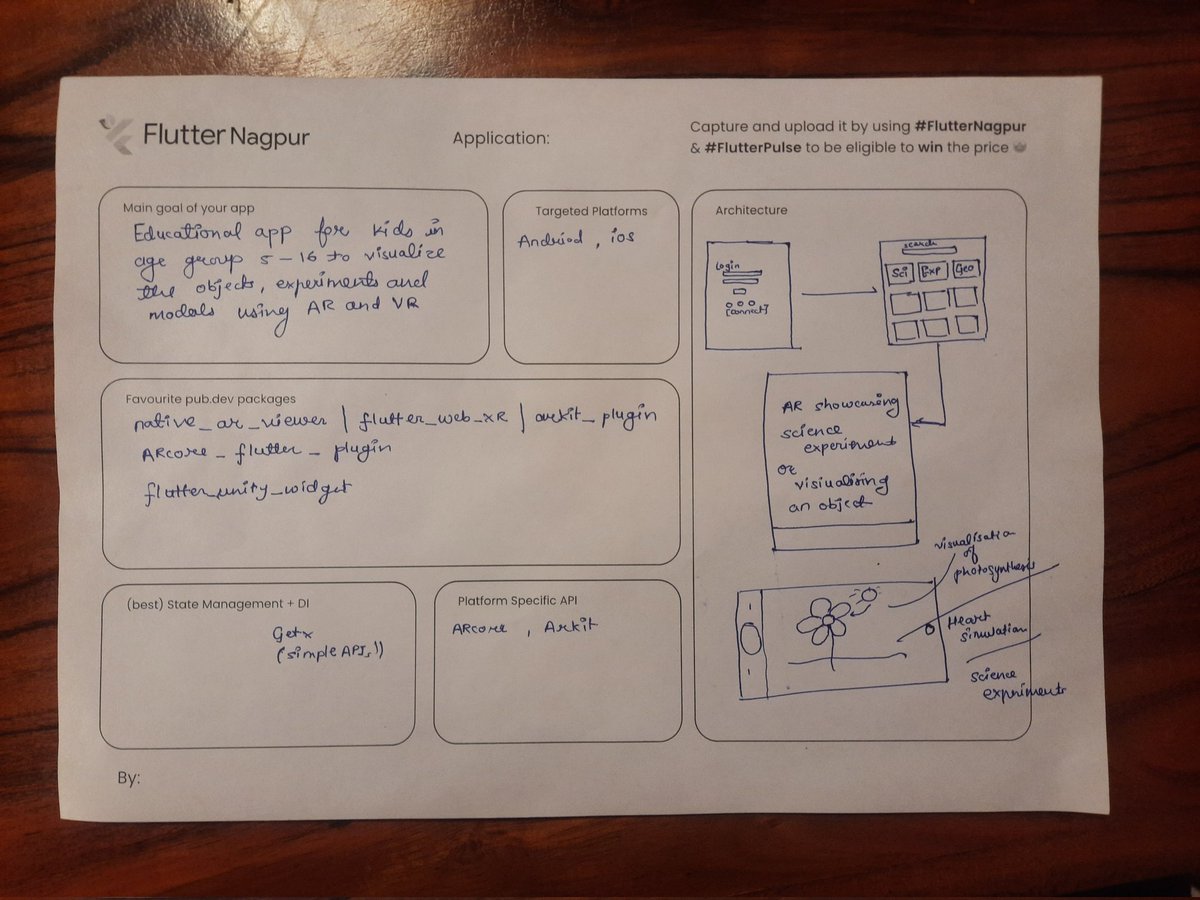 Flutter Nagpur
Application:
Capture and upload it by using #FlutterNagpur
& #FlutterPulse to be eligible to win the price
Main goal of your app
Educational app for kids in
age group 5-16 to visualize
the objects, experiments and
modals using AR and VR
Targeted Platforms
Andriod, ios
Favourite pub.dev packages
native_ar_viewer | flutter_web_XR | arkit_plugin
ARcore_flutter_plugin
flutter_unity_widget
(best) State Management + DI
Getx
(simple APIs)
Platform Specific API
ARcore, Arkit
Architecture
Login
[connect]
search
Sci Exp Geo
AR showcasing
science
experiment
or
visiualising
an object
visualisation
of
photosynthesis
Heart
simulation
science
expriments
By: